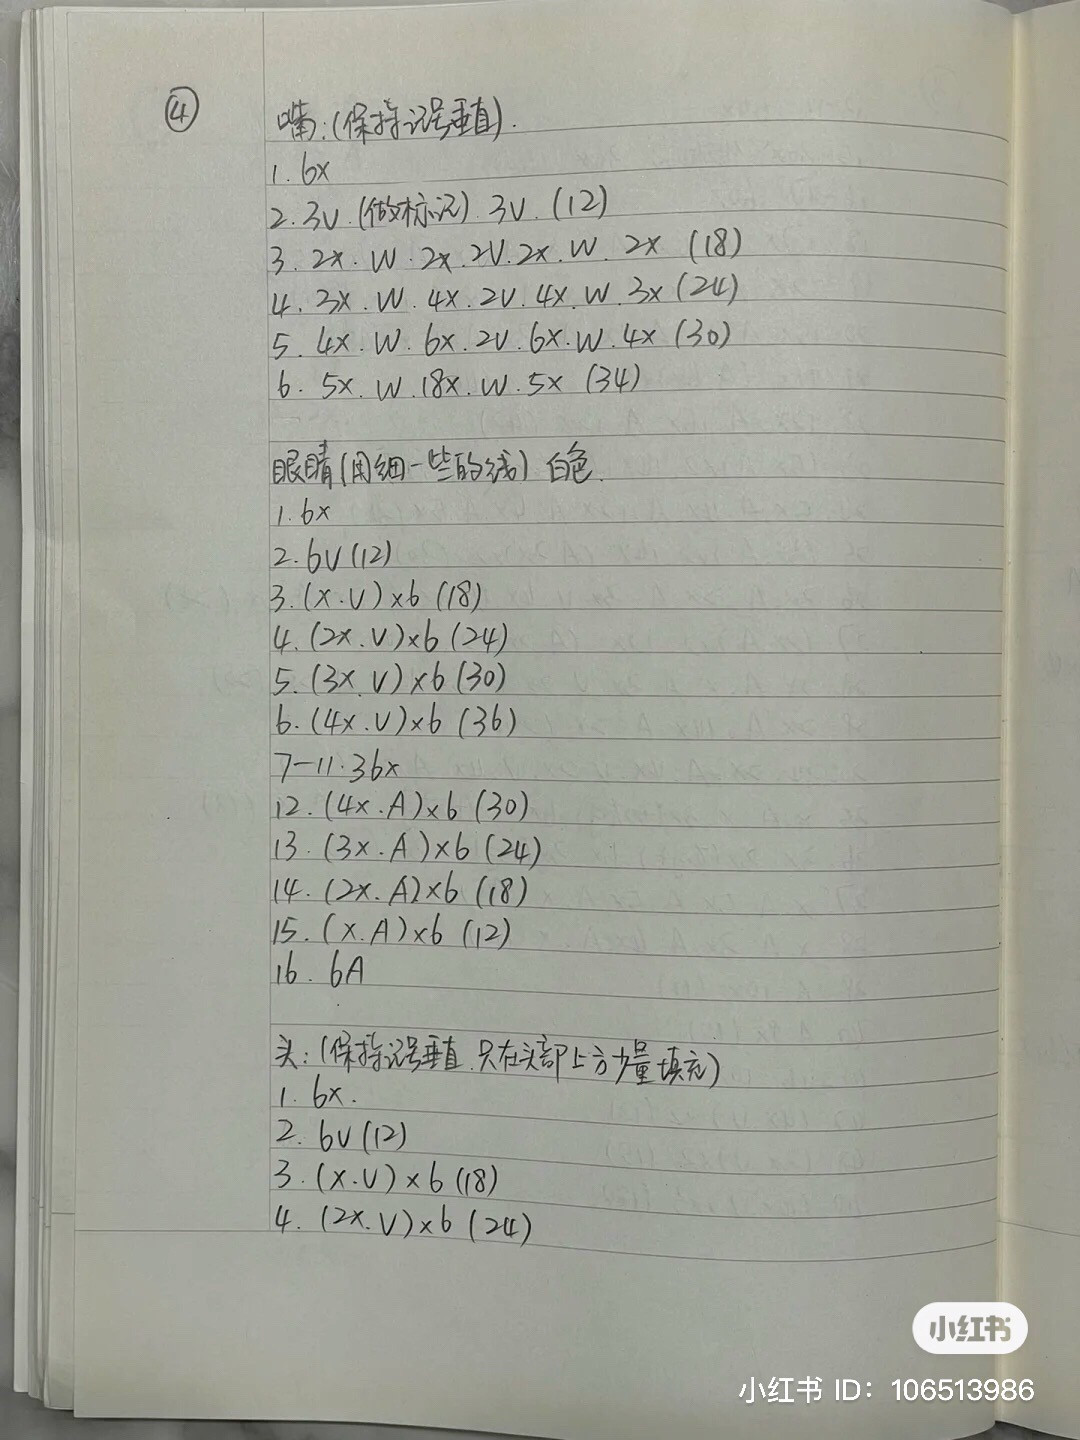 ④
嘴:(保持记号垂直).
1. 6x
2. 3V.(做标记). 3V. (12)
3. 2x. W. 2x. 2V. 2x. W. 2x (18)
4. 3x. W. 4x. 2V. 4x. W. 3x (24)
5. 4x. W. 6x. 2V. 6x. W. 4x (30)
6. 5x. W. 18x. W. 5x (34)
眼睛(用细一些的线) 白色.
1. 6x
2. 6V (12)
3. (x.V)×6 (18)
4. (2x.V)×6 (24)
5. (3x.V)×6 (30)
6. (4x.V)×6 (36)
7-11. 36x
12. (4x.A)×6 (30)
13. (3x.A)×6 (24)
14. (2x.A)×6 (18)
15. (x.A)×6 (12)
16. 6A
头:(保持记号垂直.只在头部上方少量填充)
1. 6x.
2. 6V (12)
3. (x.V)×6 (18)
4. (2x.V)×6 (24)
小红书
小红书 ID: 106513986